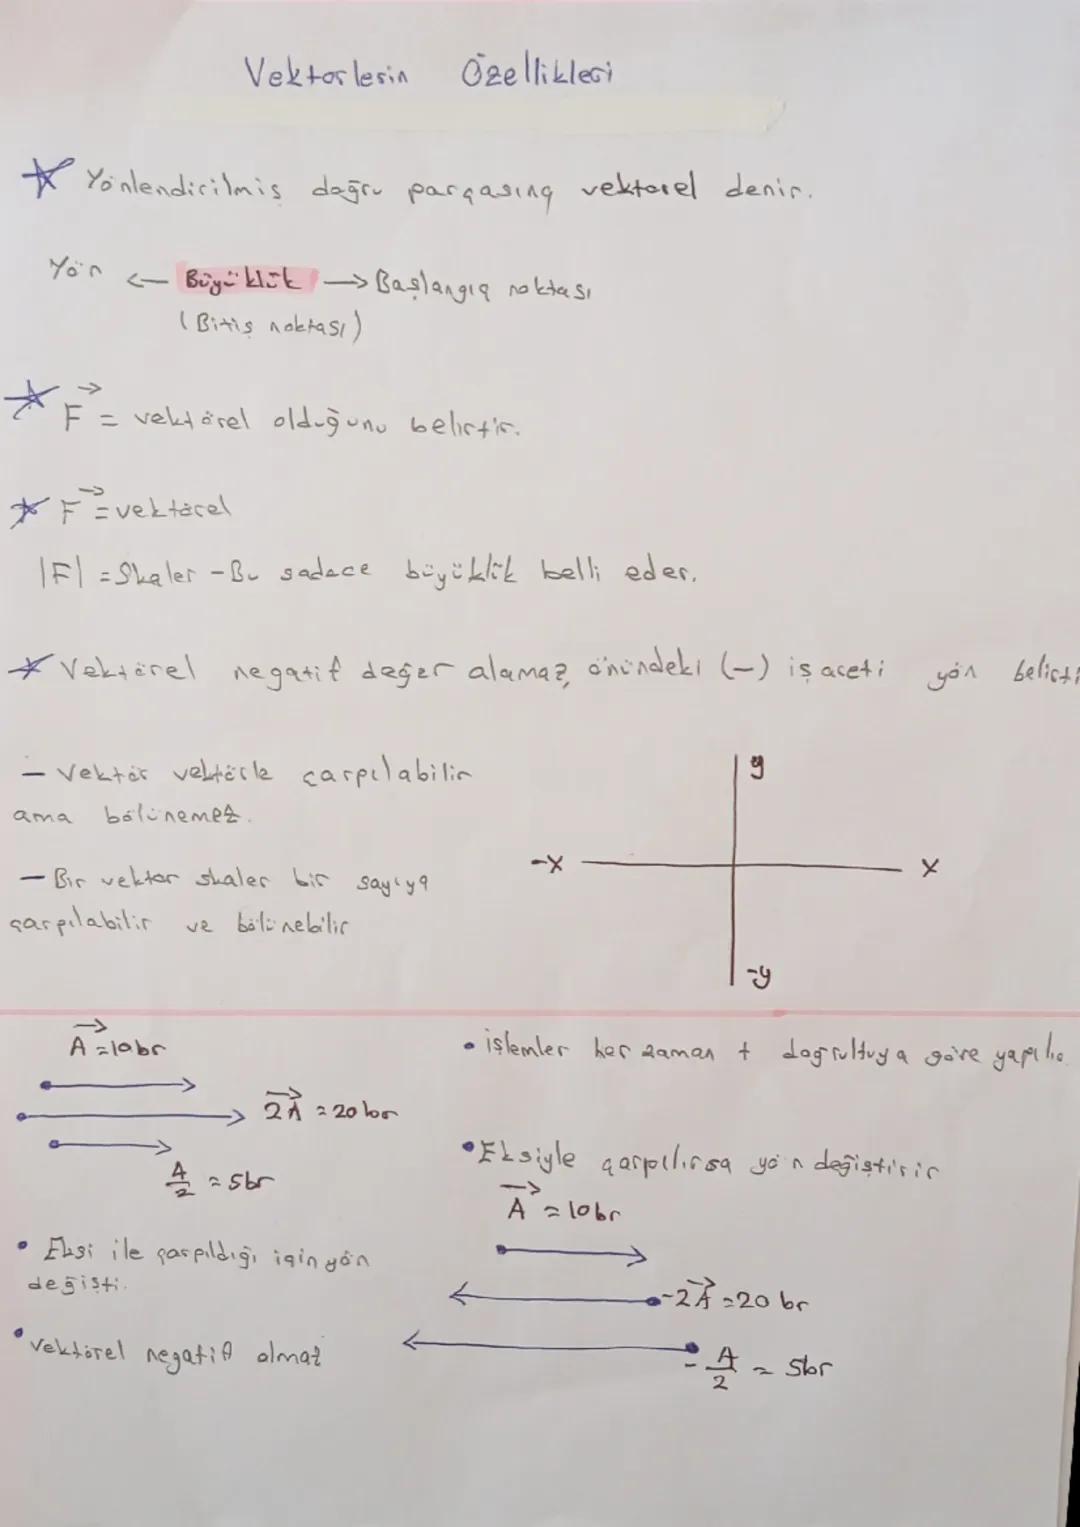 Vektörlerin Özellikleri
Yönlendirilmiş doğru parçasına vektörel denir.
Yön ← Büyüklük → Başlangıç noktası
(Bitiş noktası)
F→ = vektörel olduğunu belirtir.
F→ = vektörel
|F| = Skaler - Bu sadece büyüklük belli eder.
Vektörel negatif değer alamaz, önündeki (-) işareti yön belirti
- Vektör vektörle çarpılabilir
ama bölünemez.
- Bir vektör skaler bir sayıya
çarpılabilir ve bölünebilir
y
-x
x
-y
A→ = 10br
2A→ = 20br
A/2 = 5br
• Eksi ile çarpıldığı için yön
değişti.
• Vektörel negatif olmaz
• işlemler her zaman + doğrultuya göre yapılır.
• Eksiyle çarpılırsa yön değiştirir
A→ = 10br
-2A→ = 20 br
-A/2 = 5br